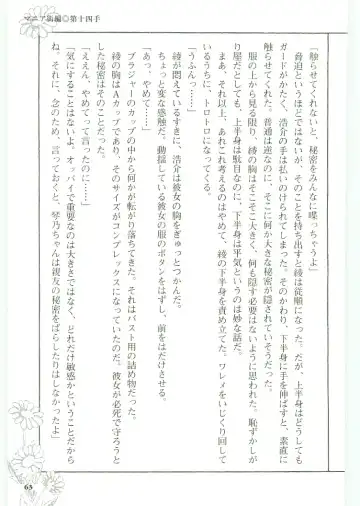 マニア術編◎第十四手
「触らせてくれないと、秘密をみんなに喋っちゃうよ」
脅迫というほどではないが、そのことを持ち出すと綾は従順になった。だが、上半身はどうしても
ガードがかたく、浩介の手は払いのけられてしまった。そのかわり、下半身に手を伸ばすと、素直に
触らせてくれた。普通は逆なのに、そこに何か大きな秘密が隠されていそうだった。
服の上から見る限り、綾の胸はそこそこ大きく、何も隠す必要はないように思われた。恥ずかしが
り屋だとしても、上半身は駄目なのに、下半身は平気というのは妙な話だ。
まあ、それ以上、あれこれ考えるのはやめて、綾の下半身を責め立てた。ワレメをいじくり回して
いるうちに、トロトロになってくる。
「うふんっ……」
綾が悶えているすきに、浩介は彼女の胸をぎゅっとつかんだ。
ちょっと変な感触だ。動揺している彼女の服のボタンをはずし、前をはだけさせる。
「あっ、やめて……」
ブラジャーのカップの中から何かが転がり落ちてきた。それはバスト用の詰め物だった。
綾の胸はAカップであり、そのサイズがコンプレックスになっていたのだ。彼女が必死で守ろうと
した秘密はそのことだった。
「ええん、やめてって言ったのに……」
「気にすることはないよ。オッパイで重要なのは大きさではなく、どれだけ敏感かということだから
ね。それに、念のため、言っておくと、琴乃ちゃんは親友の秘密をばらしたりはしなかったよ」
63